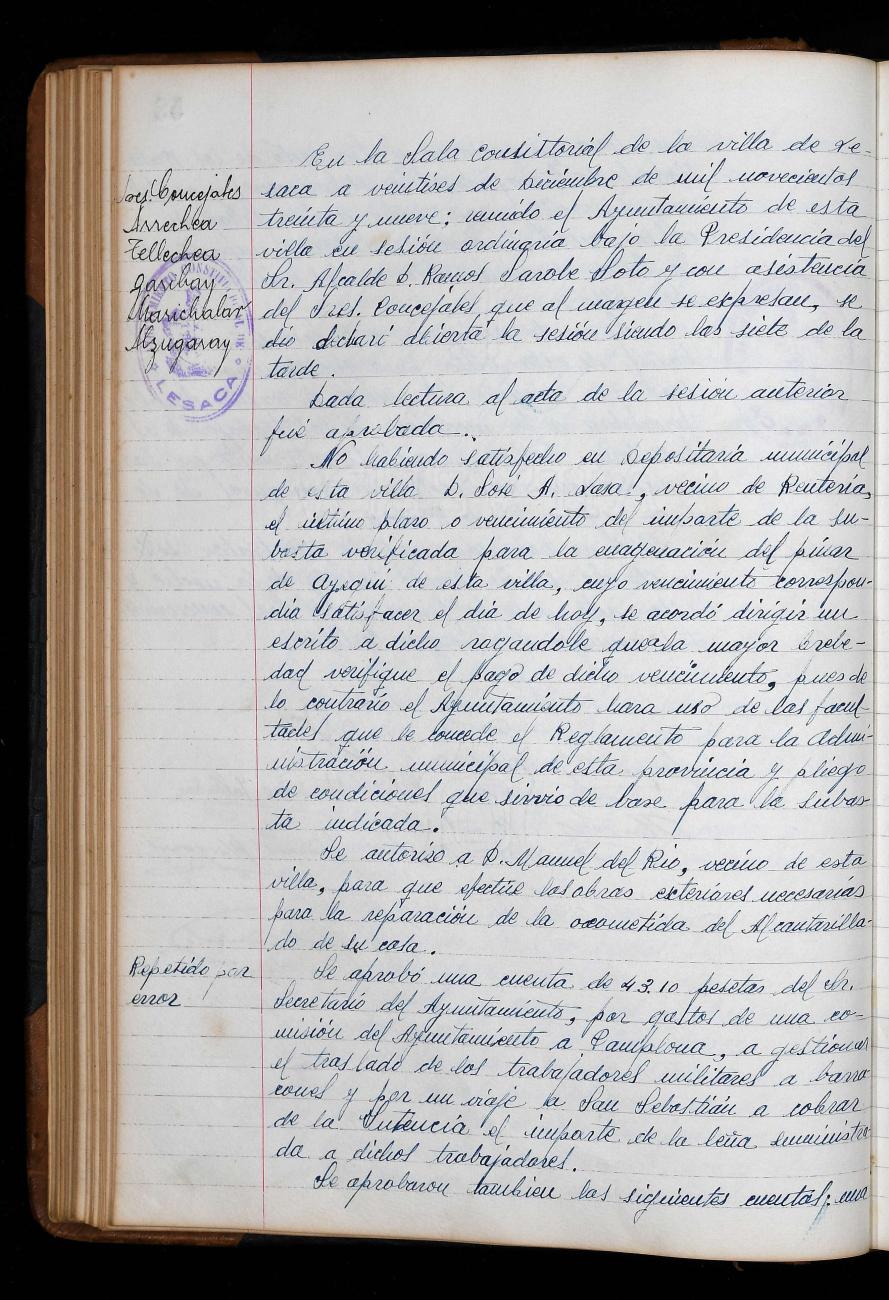 Sres. Concejales
Arrechea
Tellechea
Garibay
Marichalar
Alzugaray
LESACA
En la Sala consittorial de la villa de Le-
saca a veintises de Diciembre de mil novecientos
treinta y nueve: reunido el Ayuntamiento de esta
villa en sesión ordinaria bajo la Presidencia del
Sr. Alcalde D. Ramos Sarobe Soto y con asistencia
del Sres. Concejales que al margen se expresan, se
dio abierta la sesión siendo las siete de la
tarde.
Dada lectura al acta de la sesión anterior
fué aprobada.
No habiendo satisfecho en Depositaria municipal
de esta villa D. José A. Lasa, vecino de Renteria,
el último plazo o vencimiento del importe de la su-
basta verificada para la enagenación del pinar
de Ayegui de esta villa, cuyo vencimiento correspon-
dia satisfacer el dia de hoy, se acordó dirigir un
escrito a dicho rogandole que a la mayor breve-
dad verifique el pago de dicho vencimiento, pues de
lo contrario el Ayuntamiento hara uso de las facul-
tades que le concede el Reglamento para la Admi-
nistración municipal de esta provincia y pliego
de condiciones que sirvió de base para la subas-
ta indicada.
Se autorizo a D. Manuel del Rio, vecino de esta
villa, para que efectue las obras exteriores necesarias
para la reparación de la acometida del Alcantarilla-
do de su casa.
Repetido por
error
Se aprobó una cuenta de 43.10 pesetas del Sr.
Secretario del Ayuntamiento, por gastos de una co-
misión del Ayuntamiento a Pamplona, a gestionar
el traslado de los trabajadores militares a barra-
cones y por un viaje a San Sebastián a cobrar
de la Intencia el importe de la leña suministra-
da a dichos trabajadores.
Se aprobaron tambien las siguientes cuentas; una